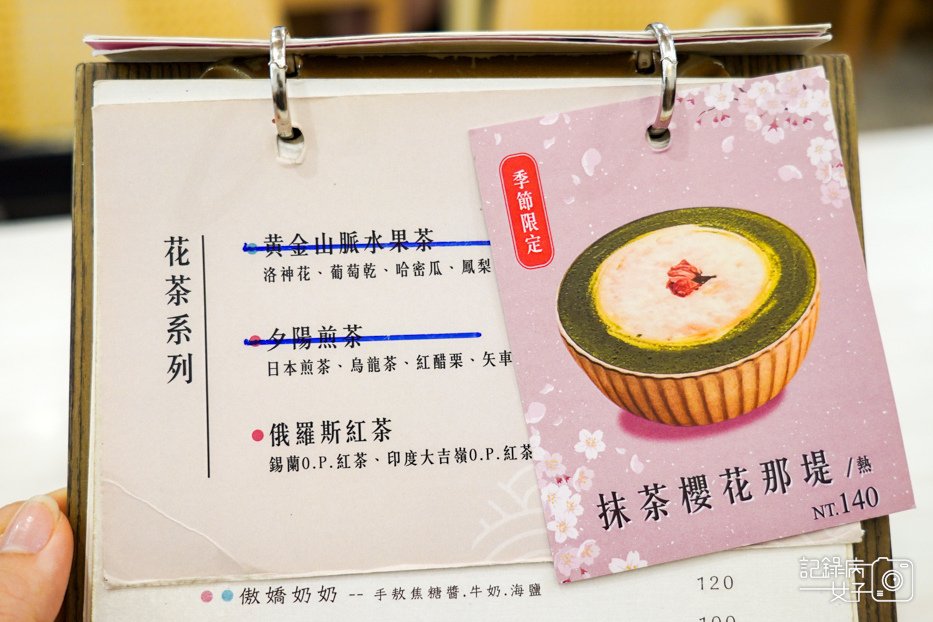 花茶系列
黃金山脈水果茶
洛神花、葡萄乾、哈密瓜、鳳梨
夕陽煎茶
日本煎茶、烏龍茶、紅醋栗、矢車
俄羅斯紅茶
錫蘭O.P.紅茶、印度大吉嶺O.P.紅茶
季節限定
抹茶櫻花那堤 /熱
NT.140
傲嬌奶奶 -- 手熬焦糖醬.牛奶.海鹽 120
記錄病
一女子